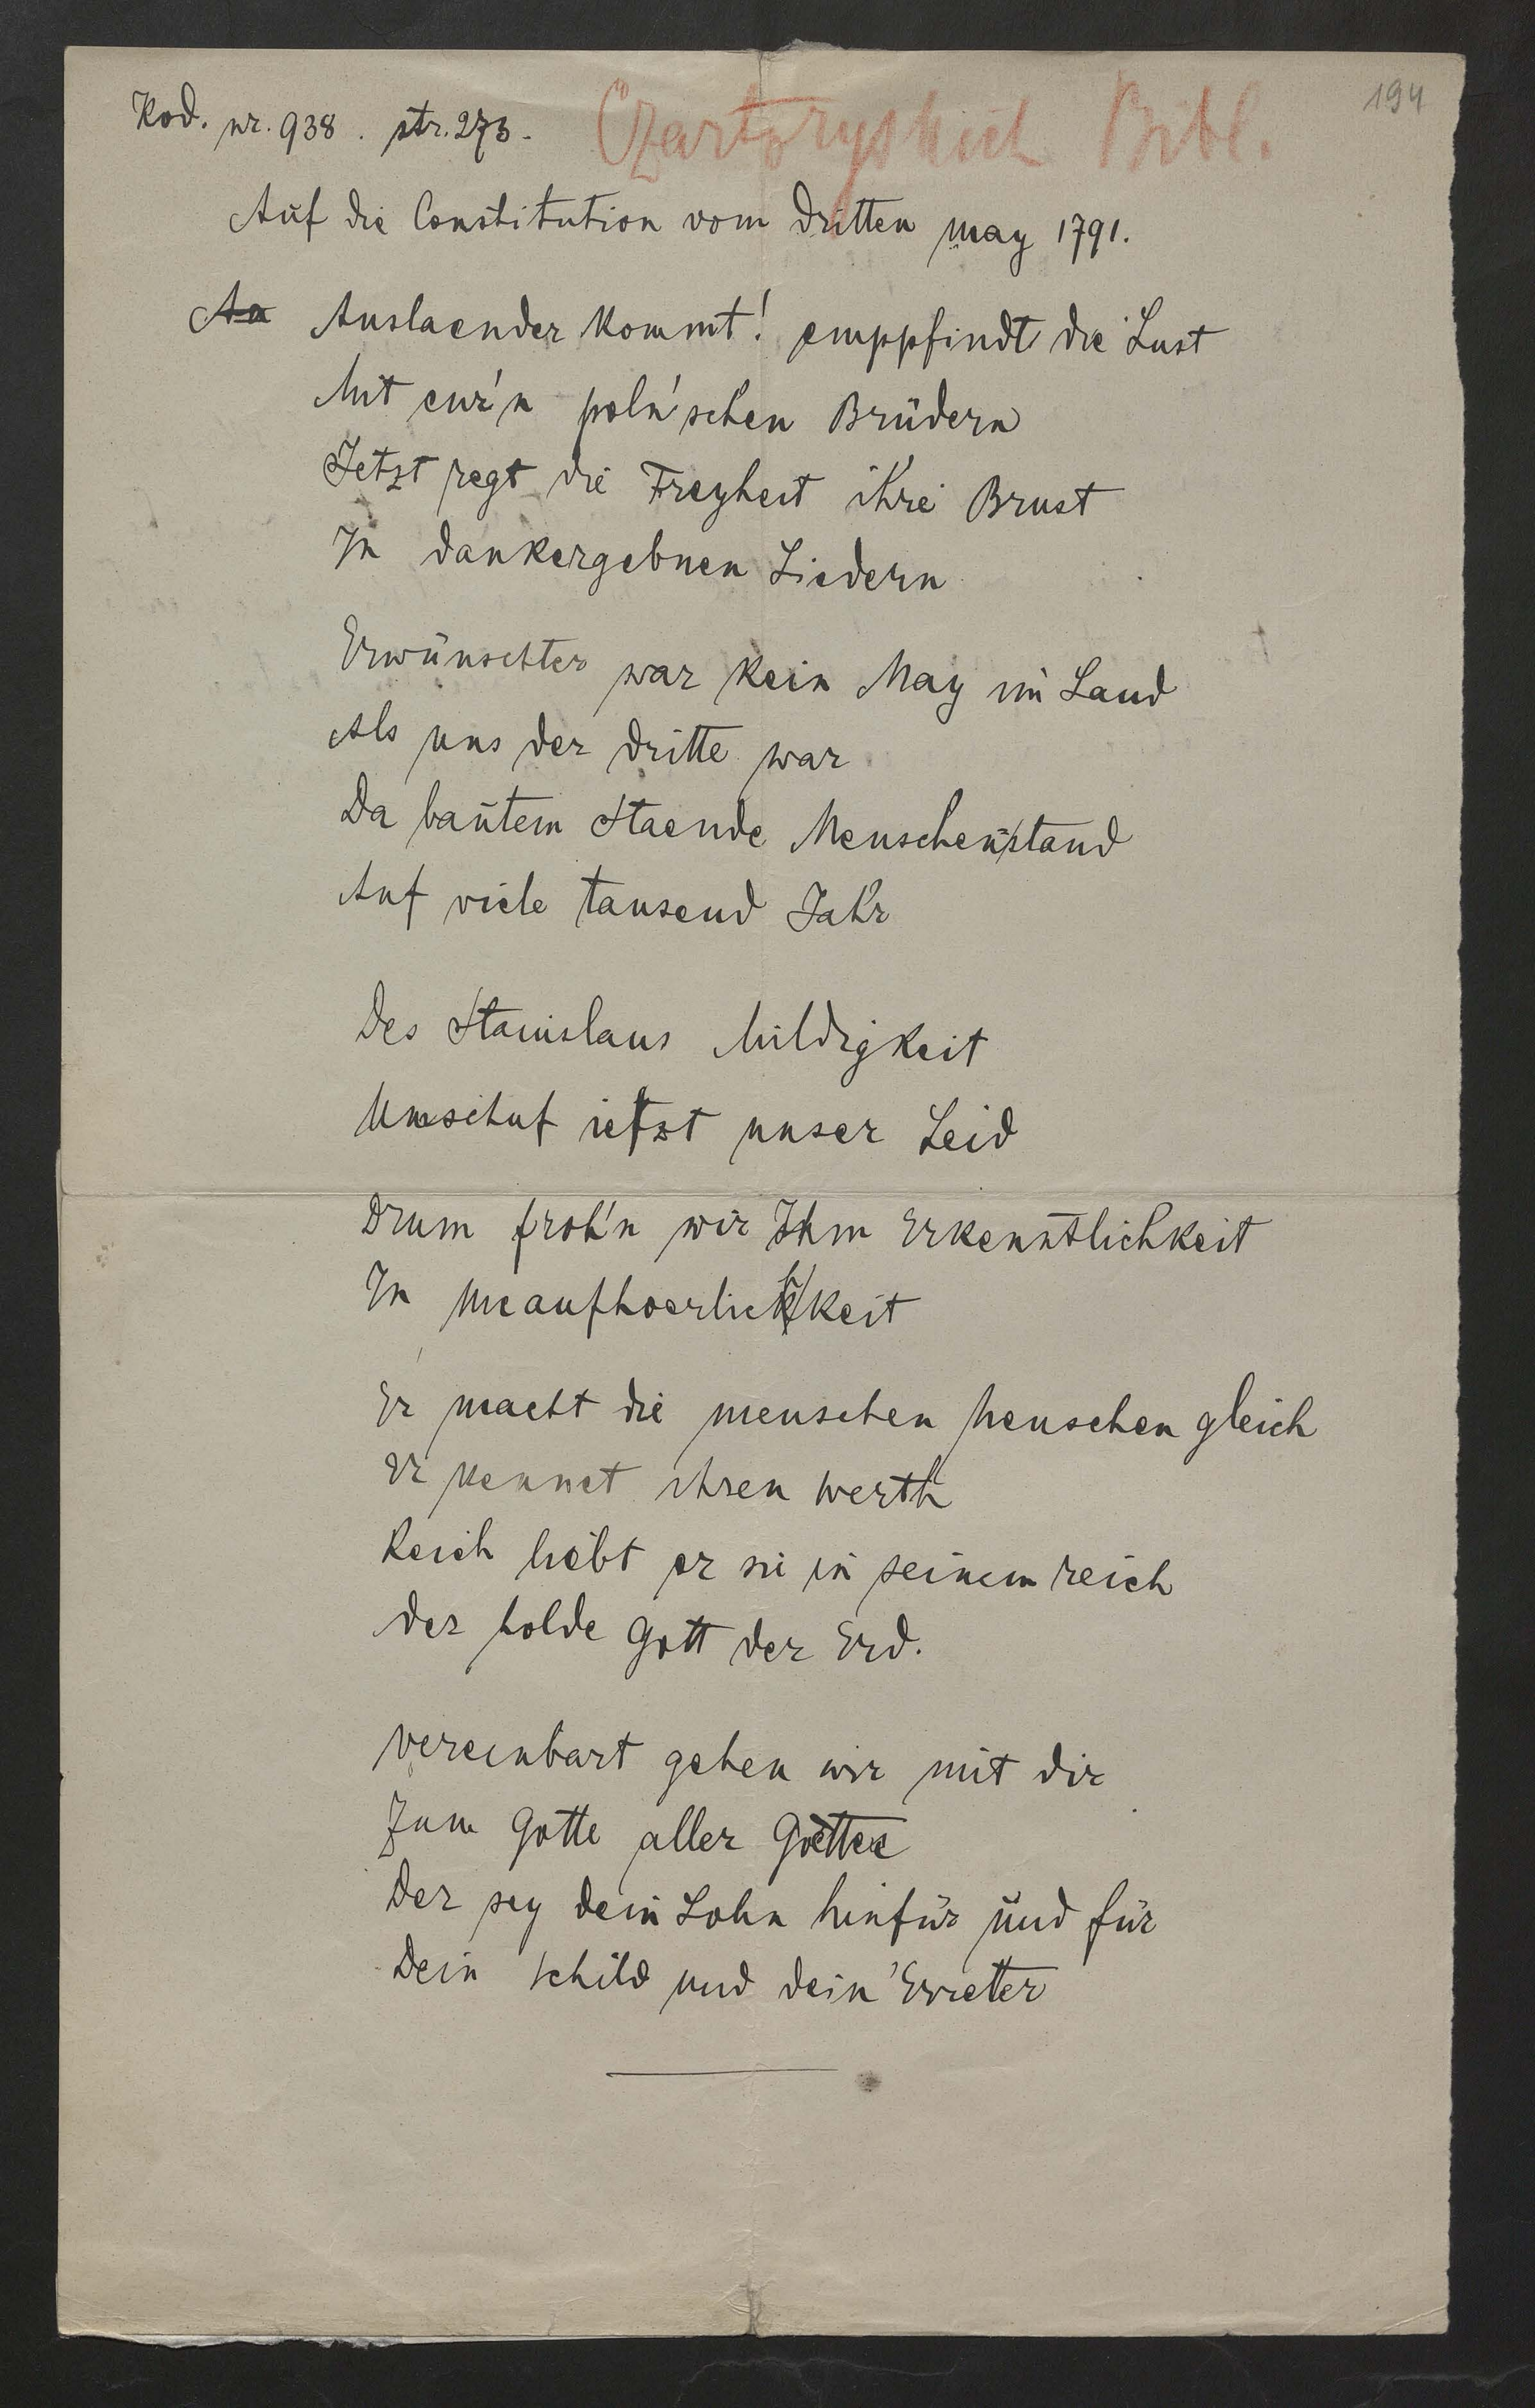 194
Kod. nr. 938. str. 273.
Czartoryskich Bibl.
Auf die Constitution vom dritten may 1791.
Auslaender kommt! emppfindt die Lust
Mit eur'n poln'schen Brüdern
Jetzt regt die Freyheit ihre Brust
In dankergebnen Liedern
Erwünschter war kein May im Land
Als uns der dritte war
Da bautem Staende Menschenstand
Auf viele tausend Jahr
Des Stanislaus Mildigkeit
Umschuf ietzt unser Leid
Drum froh'n wir Ihm Erkenntlichkeit
In Unaufhoerlichkeit
Er macht die menschen Menschen gleich
Er kennet ihren werth
Reich liebt er sie in seinem reich
der holde Gott der Erd.
Vereinbart gehen wir mit dir
Zum Gotte aller Goetter
Der sey dein Lohn hinfür und für
Dein schild und dein Erretter